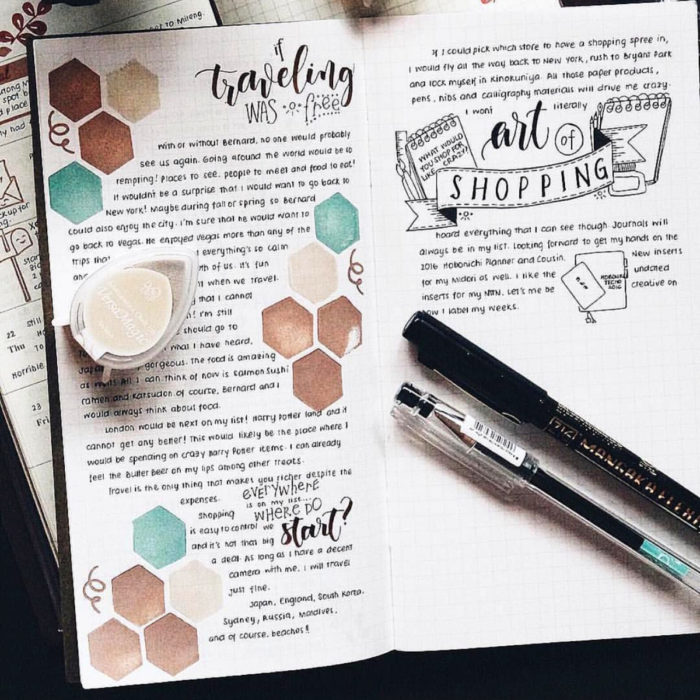 if
traveling
WAS free
With or without Bernard, no one would probably
see us again. Going around the world would be so
tempting! Places to see, people to meet and food to eat!
It wouldn't be a surprise that I would want to go back to
New York! Maybe during fall or spring so Bernard
could also enjoy the city. I'm sure that he would want to
go back to Vegas. He enjoyed Vegas more than any of the
trips that everything's so calm
and th of us. It's fun
when we travel.
that I cannot
I'm still
should go to
what I have heard,
Japan gorgeous. The food is amazing
as well! All I can think of now is salmon sushi
ramen and katsudon of course. Bernard and I
would always think about food.
London would be next on my list! Harry Potter land and it
cannot get any better! This would likely be the place where I
would be spending on crazy Harry Poter items. I can already
feel the Butter Beer on my lips among other treats.
Travel is the only thing that makes you richer despite the
expenses.
EVERYWHERE
is on my list...
WHERE DO
start?
Shopping
is easy to control we
and it's not that big
a deal. As long as I have a decent
camera with me, I will travel
just fine.
Japan, England, South Korea,
Sydney, Russia, Maldives,
and of course, beaches!
If I could pick which store to have a shopping spree in,
I would fly all the way back to New York, rush to Bryant Park
and lock myself in Kinokuniya. All those paper products,
pens, nibs and calligraphy materials will drive me crazy.
I want literally
WHAT WOULD
YOU SHOP FOR
LIKE CRAZY?
art of
SHOPPING
hoard everything that I can see though Journals will
always be in my list. Looking forward to get my hands on the
2016 Hobonichi Planner and Cousin. New inserts
for my Midori as well. I like the undated
inserts for my MTN. Let's me be creative on
how I label my weeks.
HOBONICHI
TECHO
2016
22 Still
Thu
Horrible
23
Fri
MANGAKA